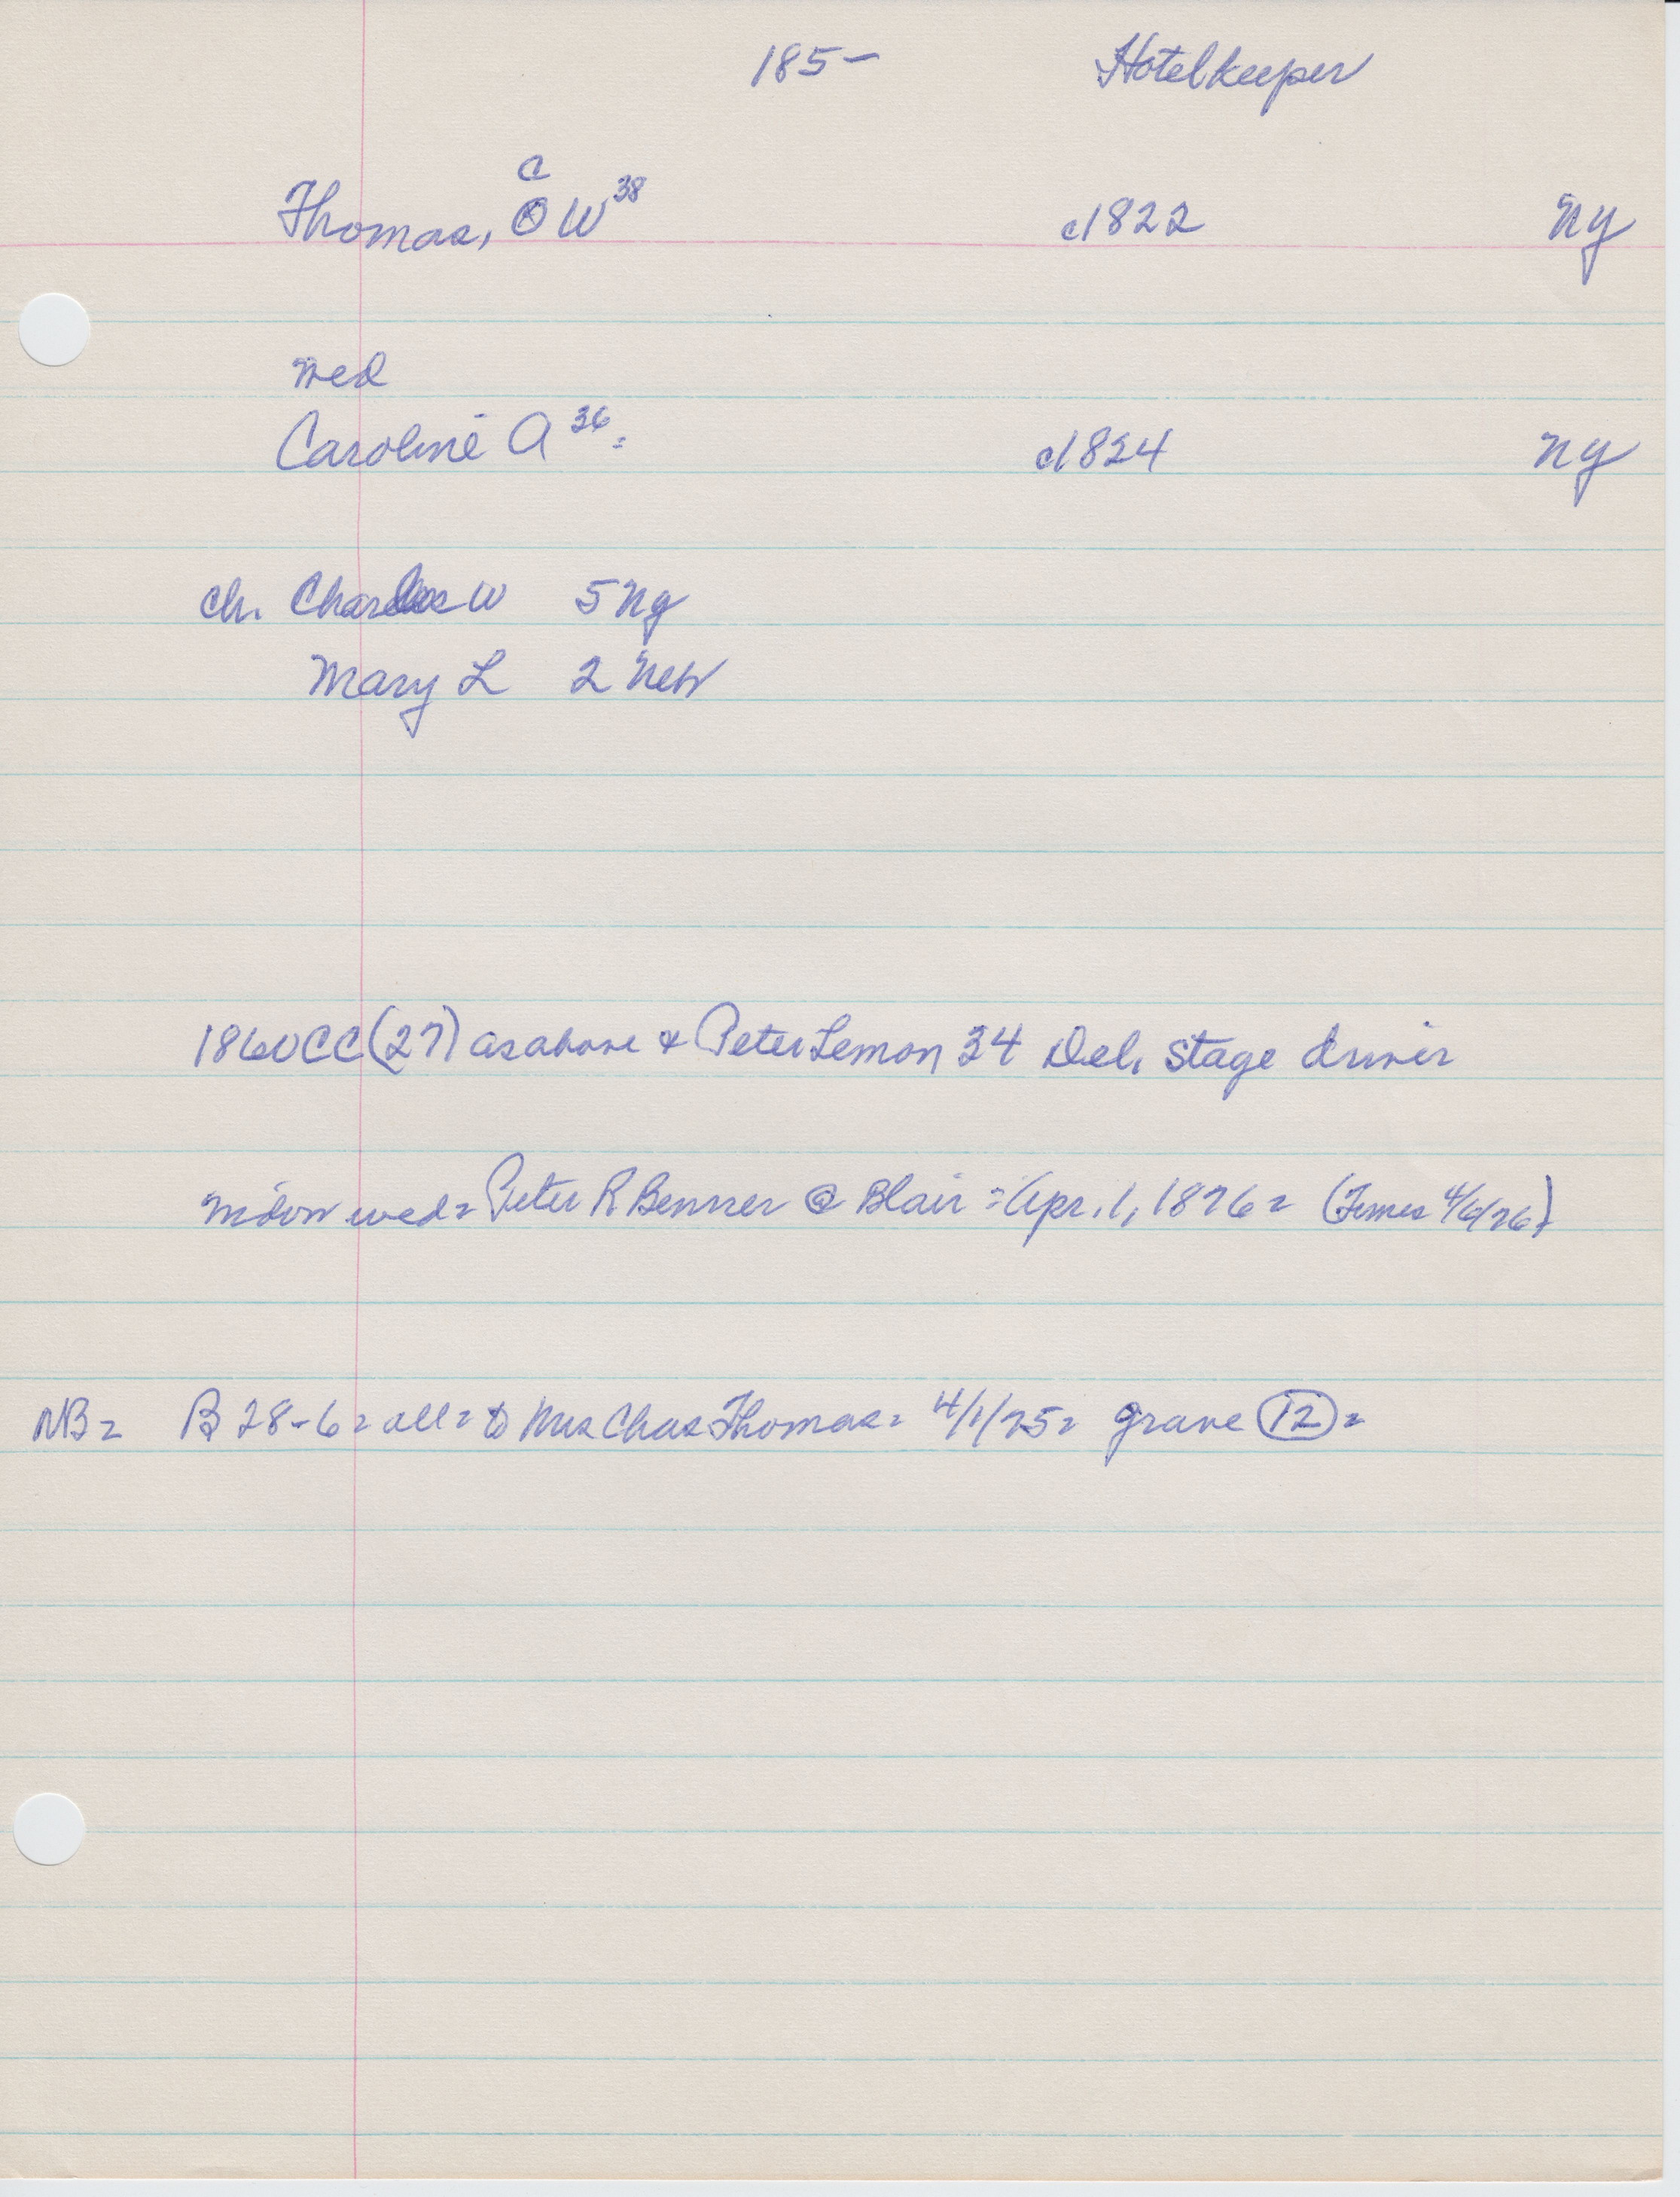 185- Hotelkeeper
C
Thomas, O W 38 c1822 NY
wed
Caroline A 36 = c1824 NY
ch. Charles W 5 NY
Mary L 2 Neb
1860CC (27) as above & Peter Lemon 34 Del. stage driver
widow wed = Peter R Benner @ Blair = Apr. 1, 1876 = (Times 4/6/76)
NB = B 28-6 = all = to Mrs Chas Thomas = 4/1/75 = grave 12 =